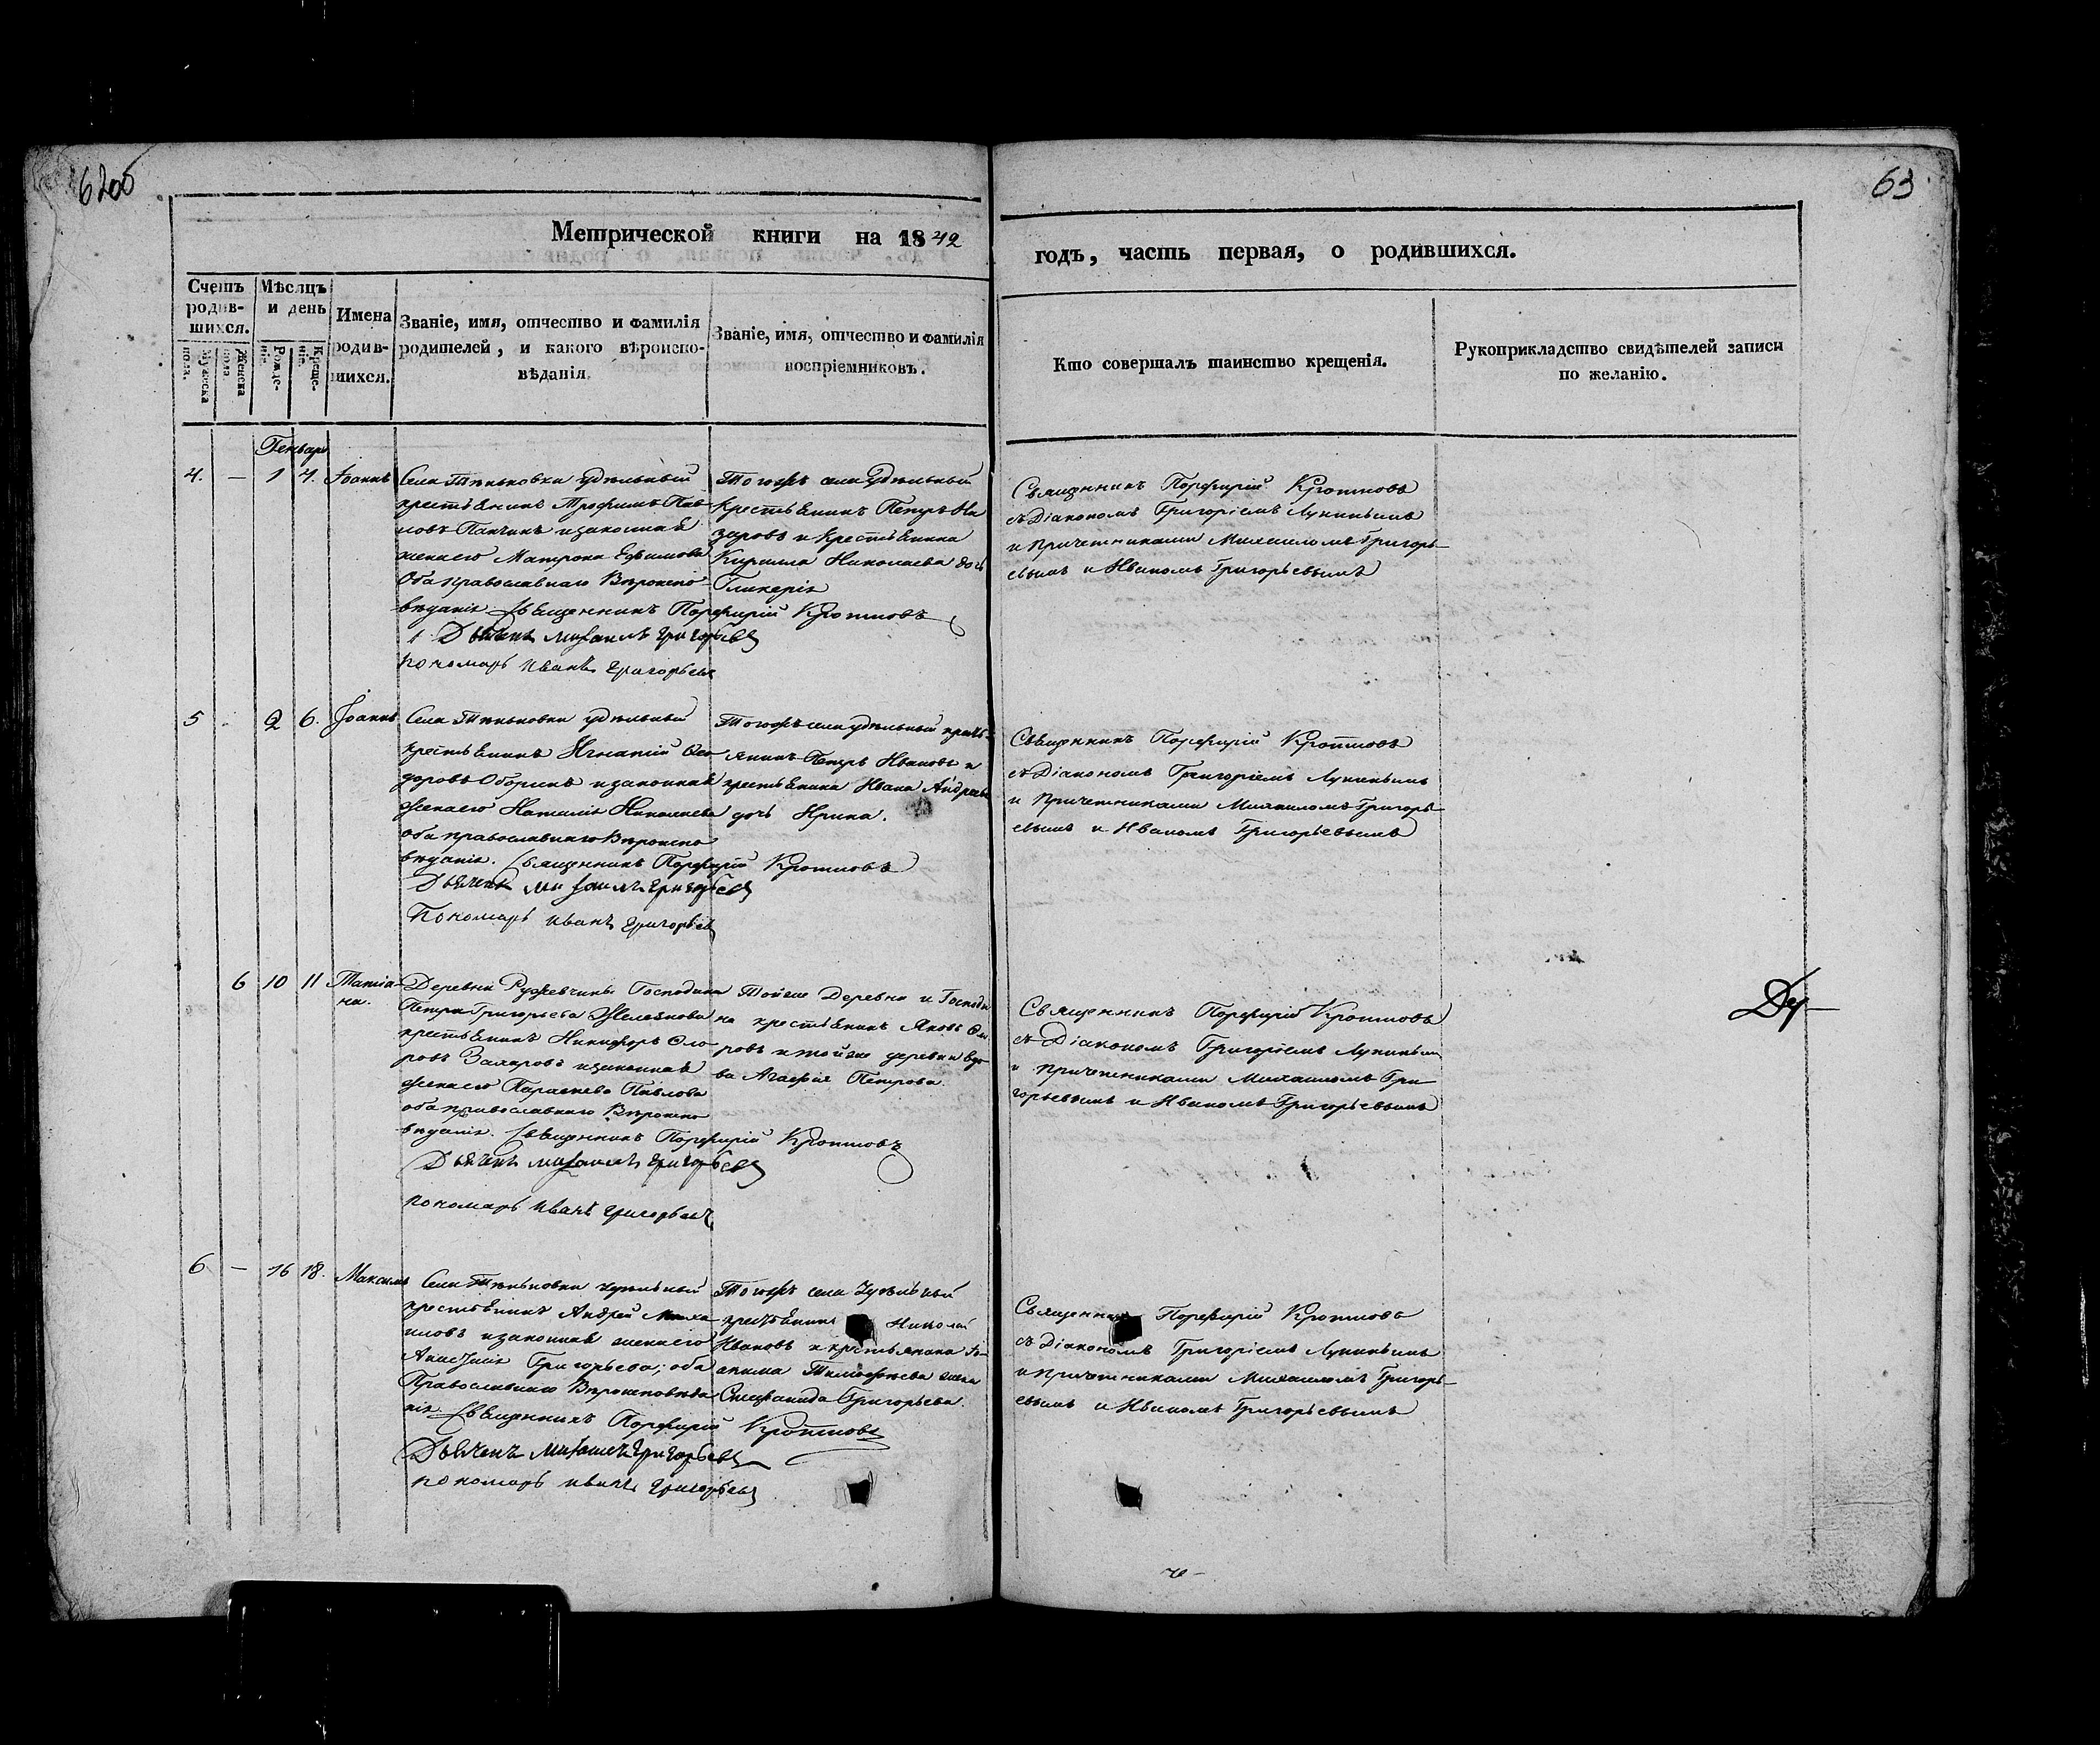 63
Метрической книги на 1842
годъ, часть первая, о родившихся.
Счетъ родив-шихся.
Мужеска пола.
Женска пола.
Мѣсяцъ и день
Рожде-нія.
Креще-нія.
Имена родив-шихся.
Званіе, имя, отчество и фамилія
родителей, и какого вѣроиспо-
вѣданія.
Званіе, имя, отчество и фамилія
воспріемниковъ.
Кто совершалъ таинство крещенія.
Рукоприкладство свидѣтелей записи
по желанію.
Генварь
4. — 1 4. Іоаннъ
Села Тѣньковки удѣльный
крестьянинъ Трофимъ Пав-
ловъ и законная
жена его Матрона Ефимова
Оба православнаго Вѣроиспо-
вѣданія Священникъ Порфирій Кротковъ
Дьячекъ Михаилъ Григорьевъ
пономарь Иванъ Григорьевъ
Тогожъ села Удѣльный
крестьянинъ Петръ На
заровъ и Крестьянина
Кирилла Николаева дочь
Гликерія
Священникъ Порфирій Кротковъ
съ Діакономъ Григоріемъ Лукинымъ
и Причетниками Михаиломъ Григорь-
евымъ и Иваномъ Григорьевымъ
5 2 6. Іоаннъ
Села Тѣньковки удѣльный
крестьянинъ Игнатій Ѳео
доровъ и законная
жена его Наталія Николаева
оба православнаго Вѣроиспо
вѣданія. Священникъ Порфирій Кротковъ
Дьячекъ Михаилъ Григорьевъ
Пономарь Иванъ Григорьевъ
Тогожъ села удѣльный кресть-
янинъ Петръ Ивановъ и
крестьянина Ивана Андреева
дочь Ирина.
Священникъ Порфирій Кротковъ
съ Діакономъ Григоріемъ Лукинымъ
и Причетниками Михаиломъ Григорь-
евымъ и Иваномъ Григорьевымъ
6 10 11 Татіа-
на.
Деревни Ружевчины Господина
Петра Григорьева Железнова
крестьянинъ Никифоръ Ѳло
ровъ Захаровъ и законная
жена его Параскева Павлова
оба православнаго Вѣроиспо
вѣданія. Священникъ Порфирій Кротковъ
Дьячекъ Михаилъ Григорьевъ
пономарь Иванъ Григорьевъ
Тойже Деревни и Господи
на крестьянинъ Яковъ Ѳло
ровъ и тойже деревни вдо
ва Агафія Петрова.
Священникъ Порфирій Кротковъ
съ Діакономъ Григоріемъ Лукинымъ
и причетниками Михаиломъ Гри-
горьевымъ и Иваномъ Григорьевымъ
6 — 16 18. Максимъ
Села Тѣньковки удѣльный
крестьянинъ Андрей Миха
иловъ и законная жена его
Анисія Григорьева; оба
Православнаго Вѣроисповѣда
нія. Священникъ Порфирій Кротковъ
Дьячекъ Михаилъ Григорьевъ
пономарь Иванъ Григорьевъ
Тогожъ села Удѣльный
крестьянинъ Николай
Ивановъ и крестьянина Іо-
акима Тимофеева жена
Степанида Григорьева.
Священникъ Порфирій Кротковъ
съ Діакономъ Григоріемъ Лукинымъ
и причетниками Михаиломъ Григорь-
евымъ и Иваномъ Григорьевымъ